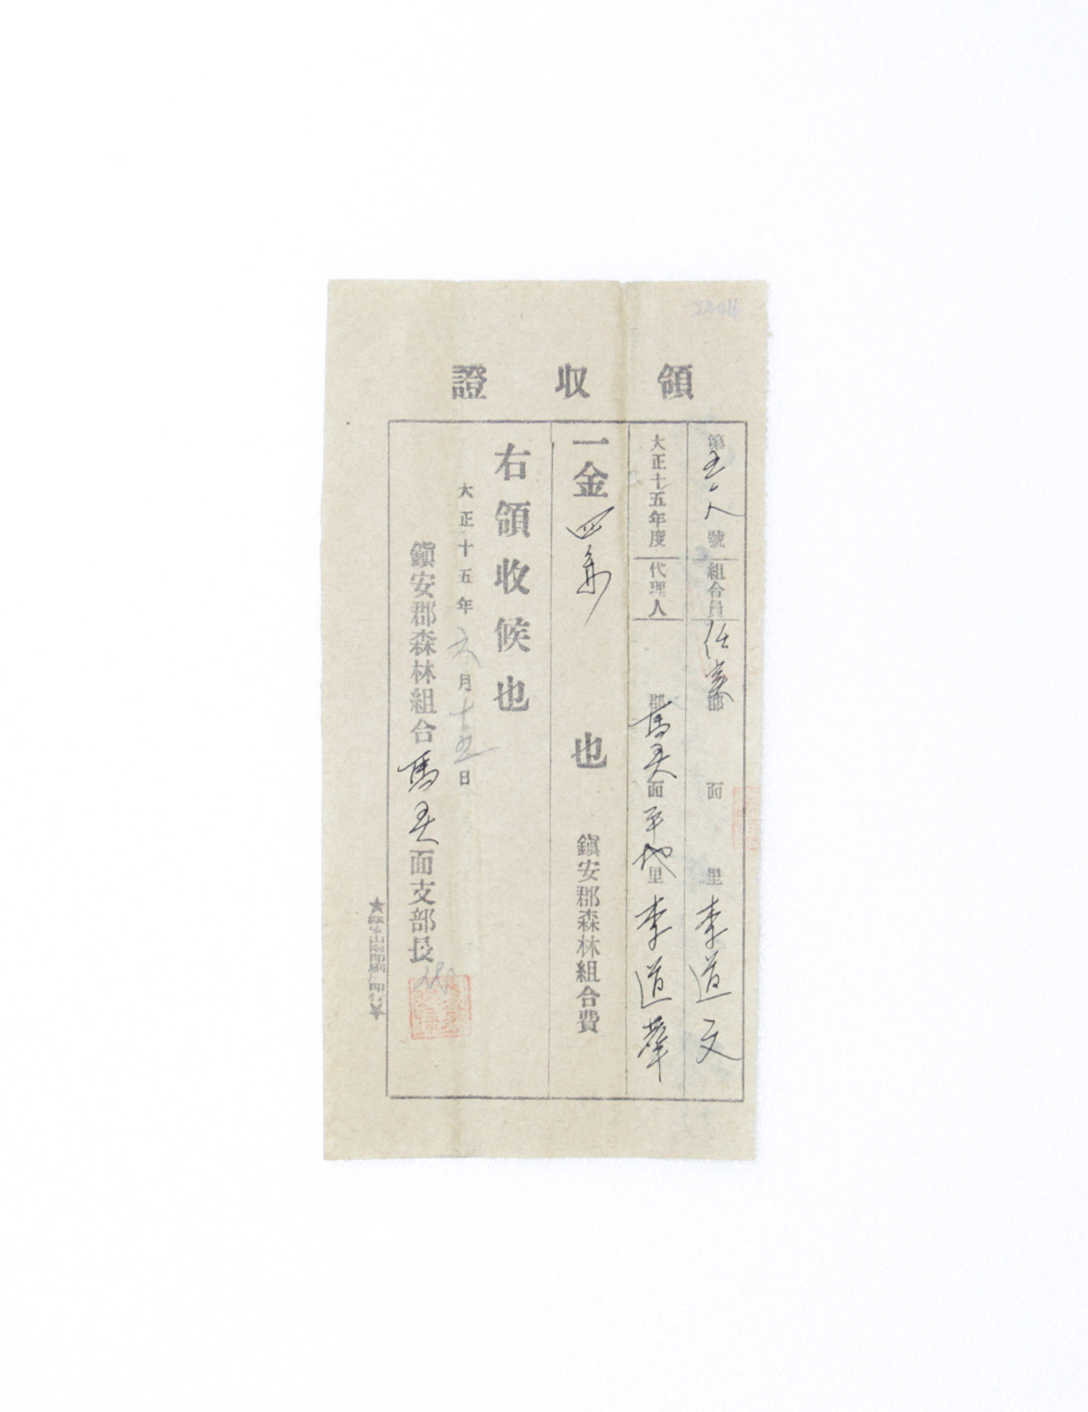 領收證
第五八號組合員任實郡 面 里李道文
大正十五年度代理人 郡馬天面平地里李道華
一金四 也 鎭安郡森林組合費
右領收候也
大正十五年六月十五日
鎭安郡森林組合馬天面支部長